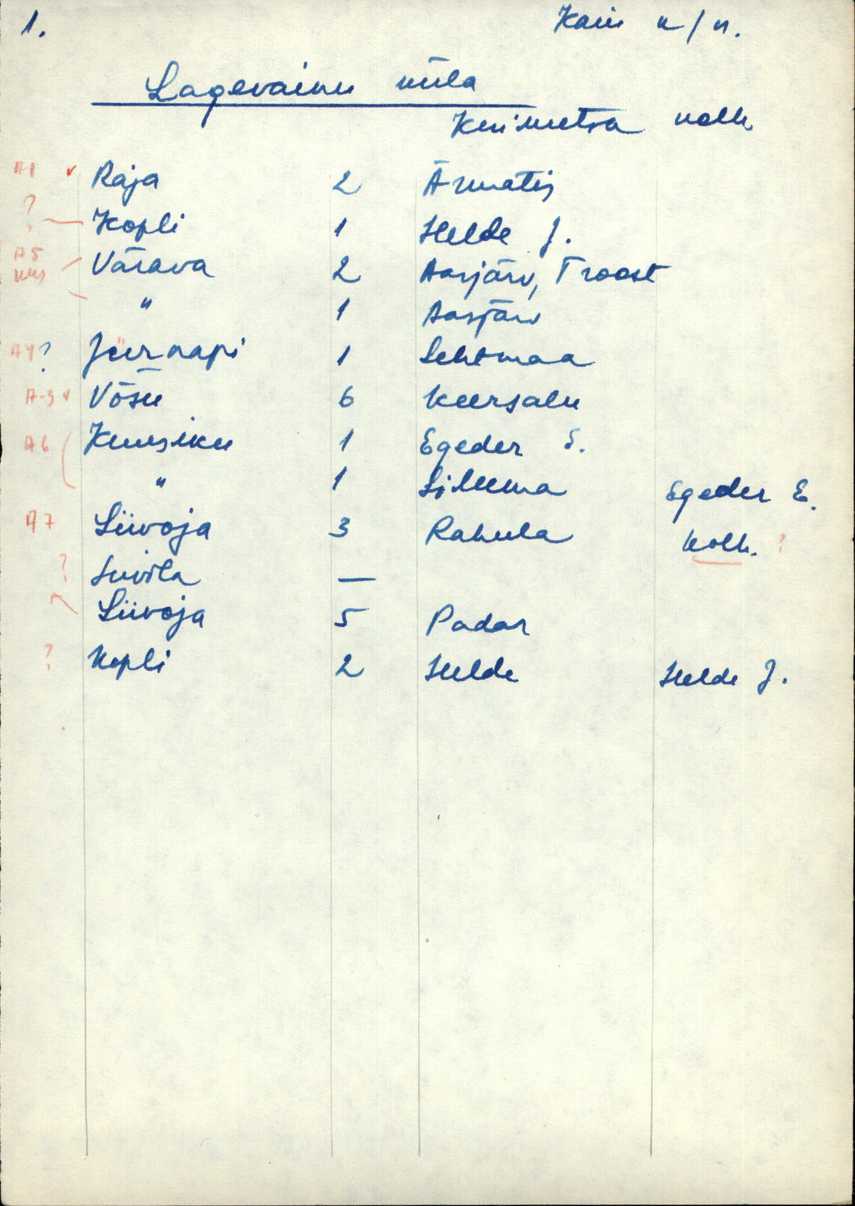 1. Kaiu k/n.
Lagevainu küla
Kuimetsa kolh.
A1 Raja 2 Ärmatis
? Kopli 1 Helde J.
A5 Värava 2 Aasjärv, Troost
" 1 Aasjärv
A4? Jüirnapi 1 Lehtmaa
A-3 Võsu 6 Keersalu
A6 Kuusiku 1 Egeder E.
" 1 Egeder E.
A7 Liivoja 3 Rahula kolh. ?
? Suvila —
Liivoja 5 Padar
? Kopli 2 Helde Helde J.